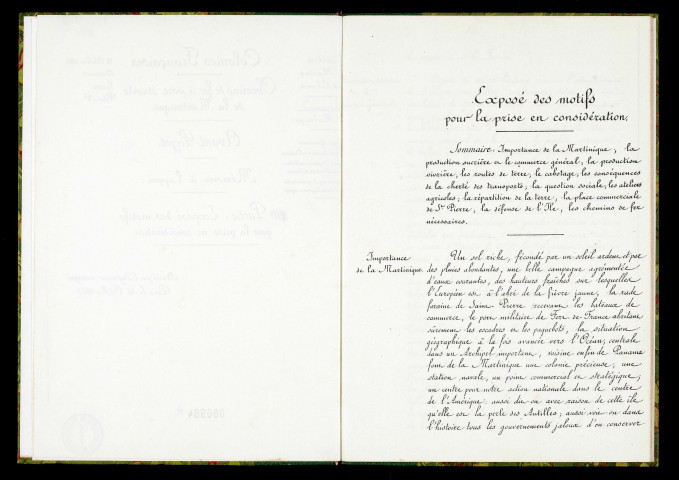 Exposé des motifs
pour la prise en considération.
Sommaire: Importance de la Martinique, la
production sucrière et le commerce général, la production
vivrière, les routes de terre, le cabotage, les conséquences
de la cherté des transports, la question sociale, les ateliers
agricoles, la répartition de la terre, la place commerciale
de St Pierre, la défense de l'Ile, les chemins de fer
nécessaires.
Importance
de la Martinique.
Un sol riche, fécondé par un soleil ardent et par
des pluies abondantes, une belle campagne agrémentée
d'eaux courantes, des hauteurs fraîches sur lesquelles
l'Européen est à l'abri de la fièvre jaune, la rade
foraine de Saint-Pierre recevant les bateaux de
commerce, le port militaire de Fort-de-France abritant
sûrement les escadres et les paquebots, la situation
géographique à la fois avancée vers l'Océan, centrale
dans un Archipel important, voisine enfin de Panama
font de la Martinique une colonie précieuse; une
station navale, un point commercial et stratégique;
un centre pour notre action nationale dans le centre
de l'Amérique: aussi dit on avec raison de cette île
qu'elle est la perle des Antilles; aussi voit on dans
l'histoire tous les gouvernements jaloux d'en conserver